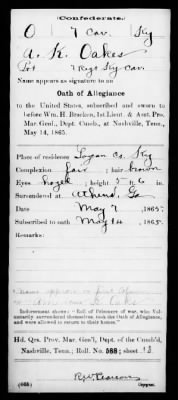 Confederate.
O 7 Cav. Ky
A. K. Oakes
Pvt 7 Regt Ky Cav.
Name appears as signature to an
Oath of Allegiance
to the United States, subscribed and sworn to
before Wm. H. Bracken, 1st Lieut. & Asst. Pro.
Mar. Genl., Dept. Cumb., at Nashville, Tenn.,
May 14, 1865.
Place of residence Logan Co. Ky
Complexion fair ; hair brown
Eyes hazel ; height 5 ft. 6 in.
Surrendered at Athens, Ga
Date May 7, 1865.
Subscribed to oath May 14, 1865.
Remarks:
Name appears
Oakes
Indorsement shows: "Roll of Prisoners of war, who vol-
untarily surrendered themselves, took the Oath of Allegiance,
and were allowed to return to their homes."
Hd. Qrs. Prov. Mar. Gen'l, Dept. of the Cumb'd,
Nashville, Tenn.; Roll. No. 588; sheet 13
R. W. Pearson
(668) Copyist.